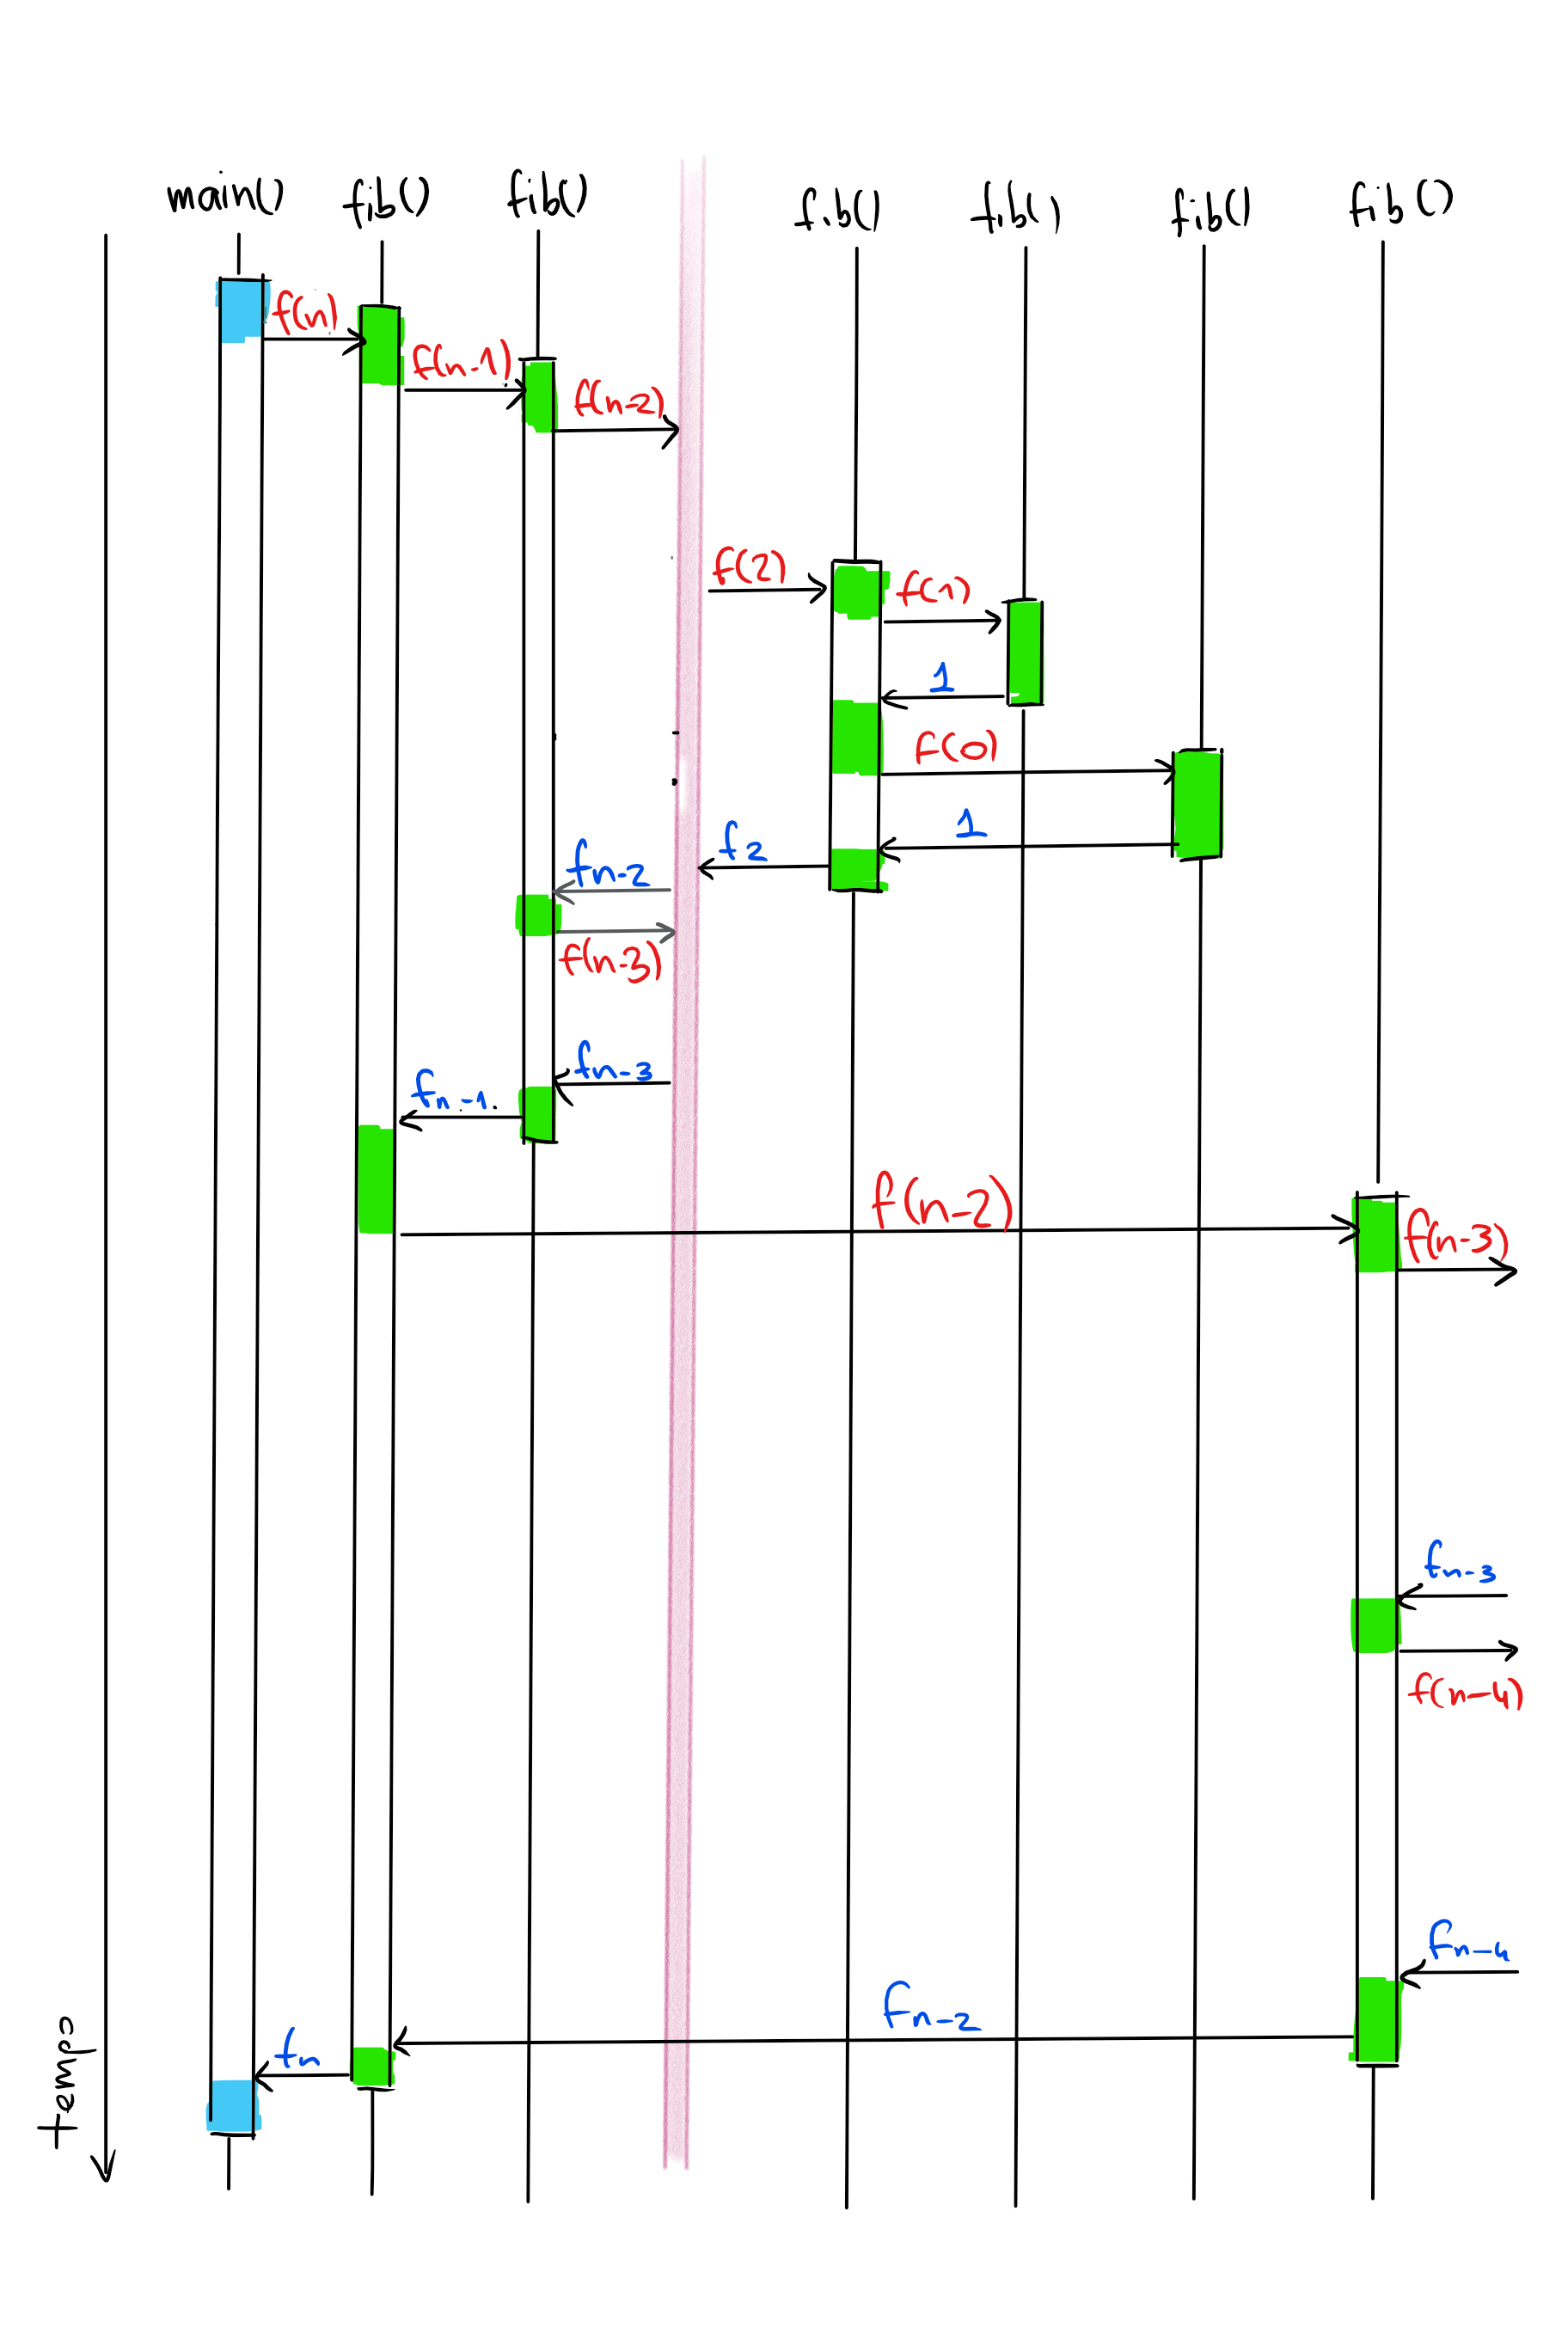 main()
fib()
fib()
fib()
fib()
fib()
fib()
f(n)
f(n-1)
f(n-2)
f(2)
f(1)
1
f(0)
1
f2
fn-2
f(n-3)
fn-3
fn-1
f(n-2)
f(n-3)
fn-3
f(n-4)
fn-4
fn-2
fn
temps